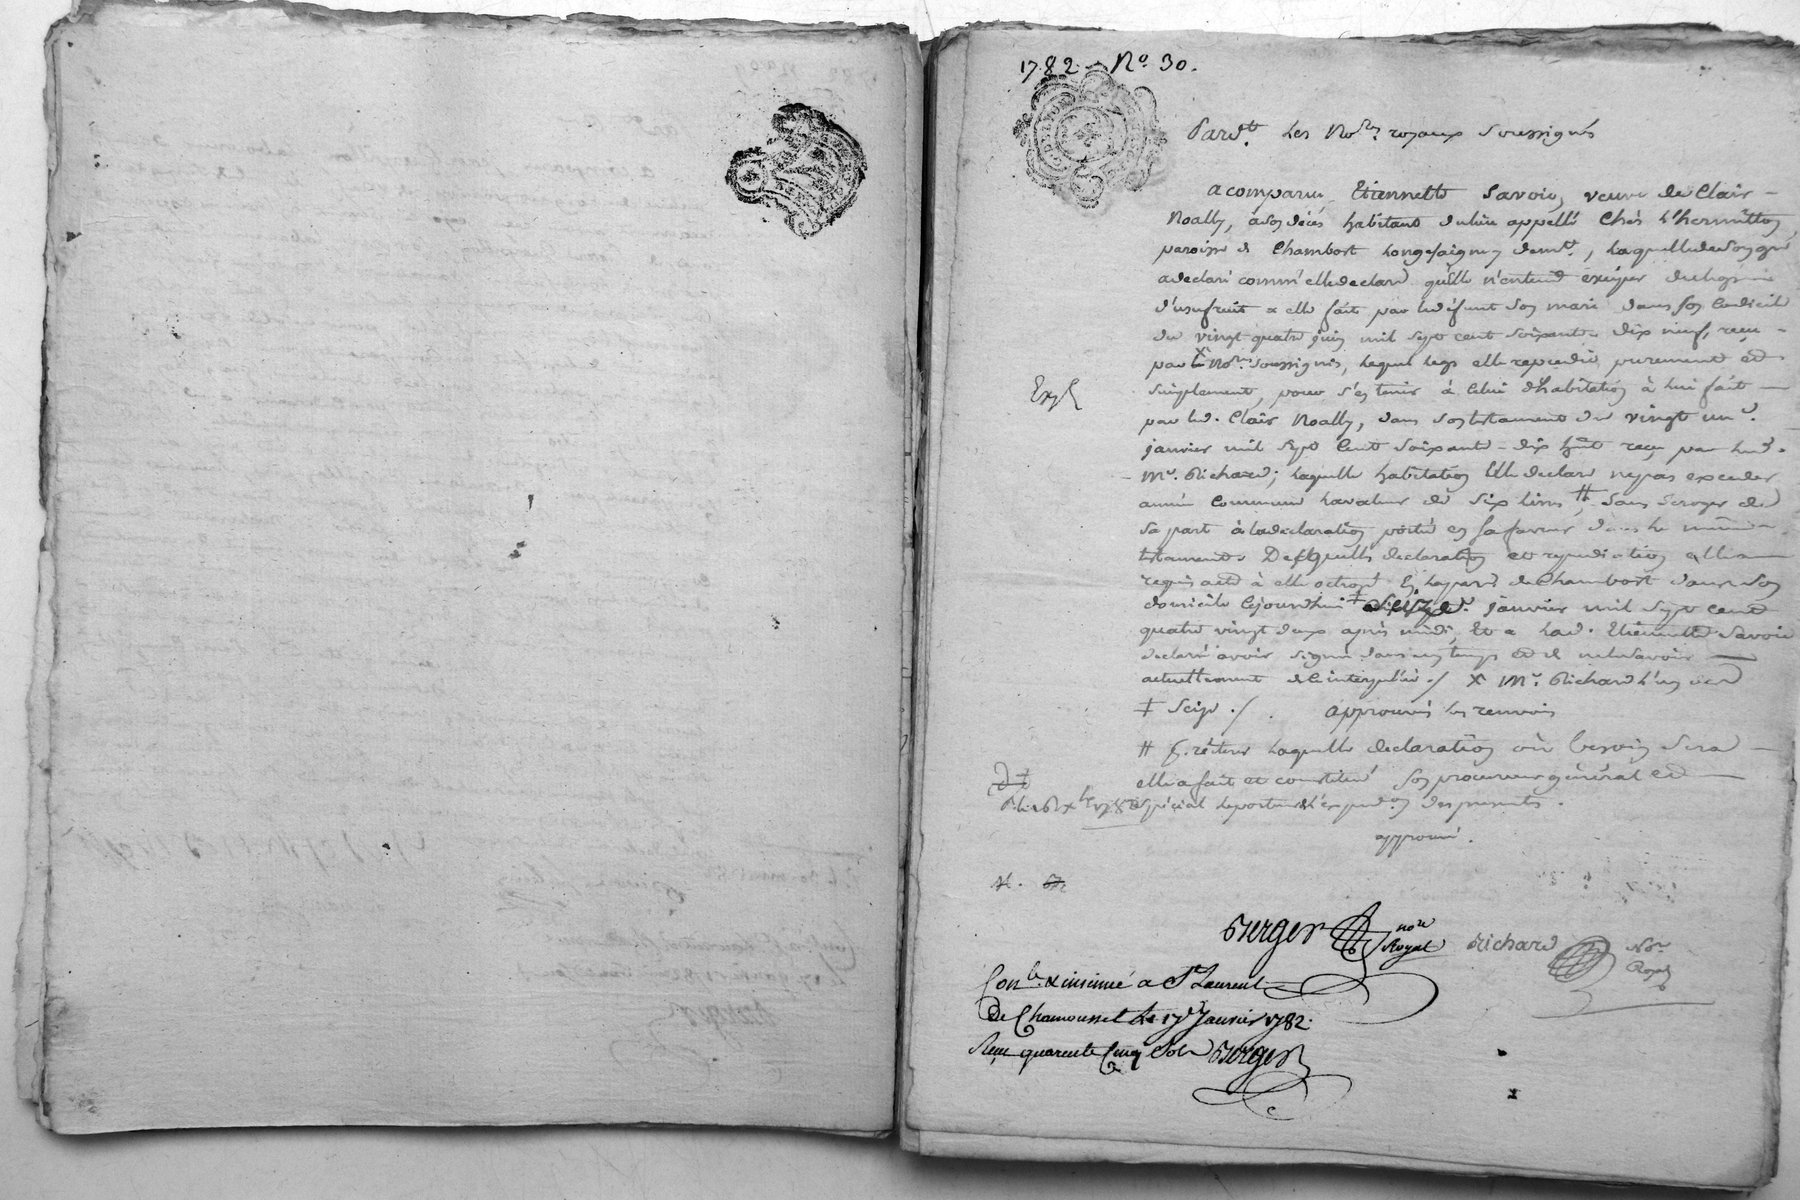 1782. No. 30.
Pardt. Les Nores. royaux soussignés
a comparu Etiennette Savoie veuve de Clair
Noally, à son décès habitant du lieu appellé Chés L'hermitton,
paroisse de Chambost Longesaigne demt., Laquelle de son gré
a declaré comm'elle declare qu'elle n'entend exiger du legs
d'usufruit a elle fait par led. défunt son mari dans son Codicile
du vingt quatre juin mil sept cent soixante dix neuf, reçu
par X Nores. soussignés, lequel legs elle repudie purement et
simplement, pour s'en tenir à Celui d'habitation à lui fait
Exp
par led. Clair Noally, dans son testament du vingt un
janvier mil sept Cent soixante-dix huit reçu par led.
Me. Richard; Laquelle habitation Elle declare ne pas exceder
année Commune La valeur de six livres #, sans deroger de
sa part à la declaration portée en sa faveur dans le même
testament. Desquelles declaration et repudiation elle a
requis acte à elle octroyé En la parse. de Chambost dans son
domicile Cejourdhui ‡ janvier mil sept cent
quatre vingt deux après midi, Et a lad. Etiennette Savoie
declaré avoir signé dans un tems et de ne le savoir
actuellement de ce interpellée ./ X Me. Richard L'un des
‡ Seize ./. approuvés les renvois
# réiterer Laquelle declaration où besoin sera
elle a fait et constitué son procureur général et
spécial le porteur d'expedon. des presentes.
approuvé.
Berger nore Royal Richard Nore Royal
Conle. & insinué a St Laurent
De Chamousset Le 17e Janvier 1782.
Reçu quarente Cinq Sols Berger